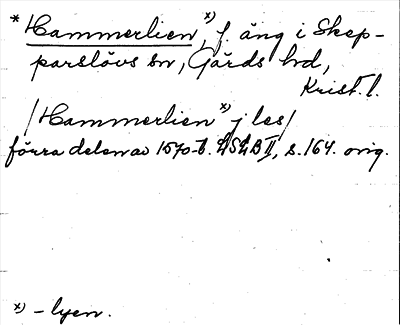 * Hammerlien x), f. äng i Skep-
parslövs sn, Gärds hd,
Krist. l.
/Hammerlien x) j les/
förra delen av 1570-t. LSLB II, s. 164. orig.
x) - lyen.